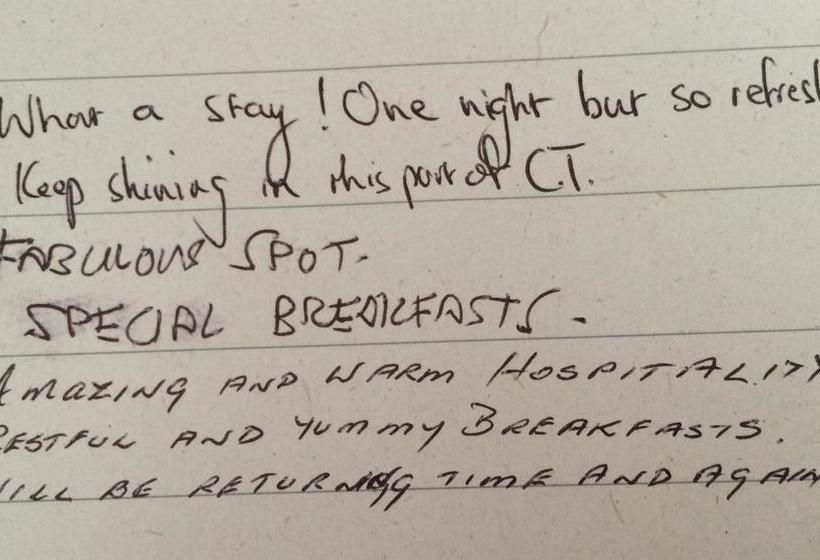 What a stay! One night but so refresh
Keep shining in this part of C.T.
FABULOUS SPOT.
SPECIAL BREAKFASTS.
AMAZING AND WARM HOSPITALITY
RESTFUL AND YUMMY BREAKFASTS.
WILL BE RETURNING TIME AND AGAIN